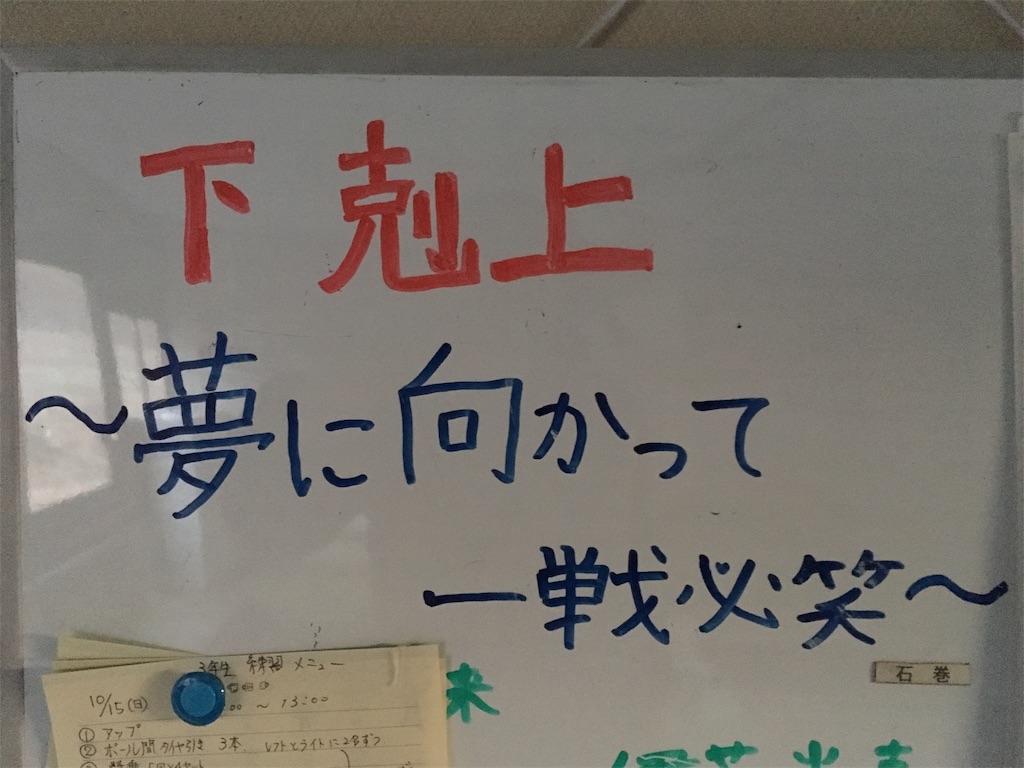 下剋上
〜夢に向かって
一戦必笑〜
石巻
3年生 練習メニュー
10/15(日)
〜 13:00
① アップ
② ポール間タイヤ引き 3本 レフトとライトに2名ずつ
来